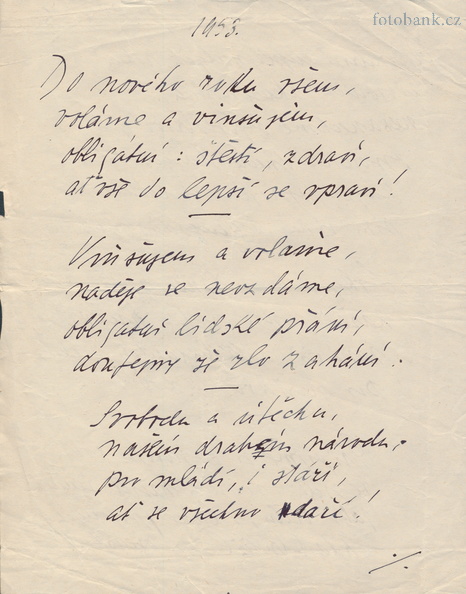 fotobank.cz
1953.
Do nového roku všem,
voláme a vinšujem,
obligátní : štěstí, zdraví,
ať vše do lepší se vpraví !
Vinšujem a voláme,
naděje se nevzdáme,
obligatní lidské přání,
doufejme že zlo zahání.
Svobodu a útěchu,
našem drahém národu,
pro mládí, i stáří,
ať se všechno daří !
./.